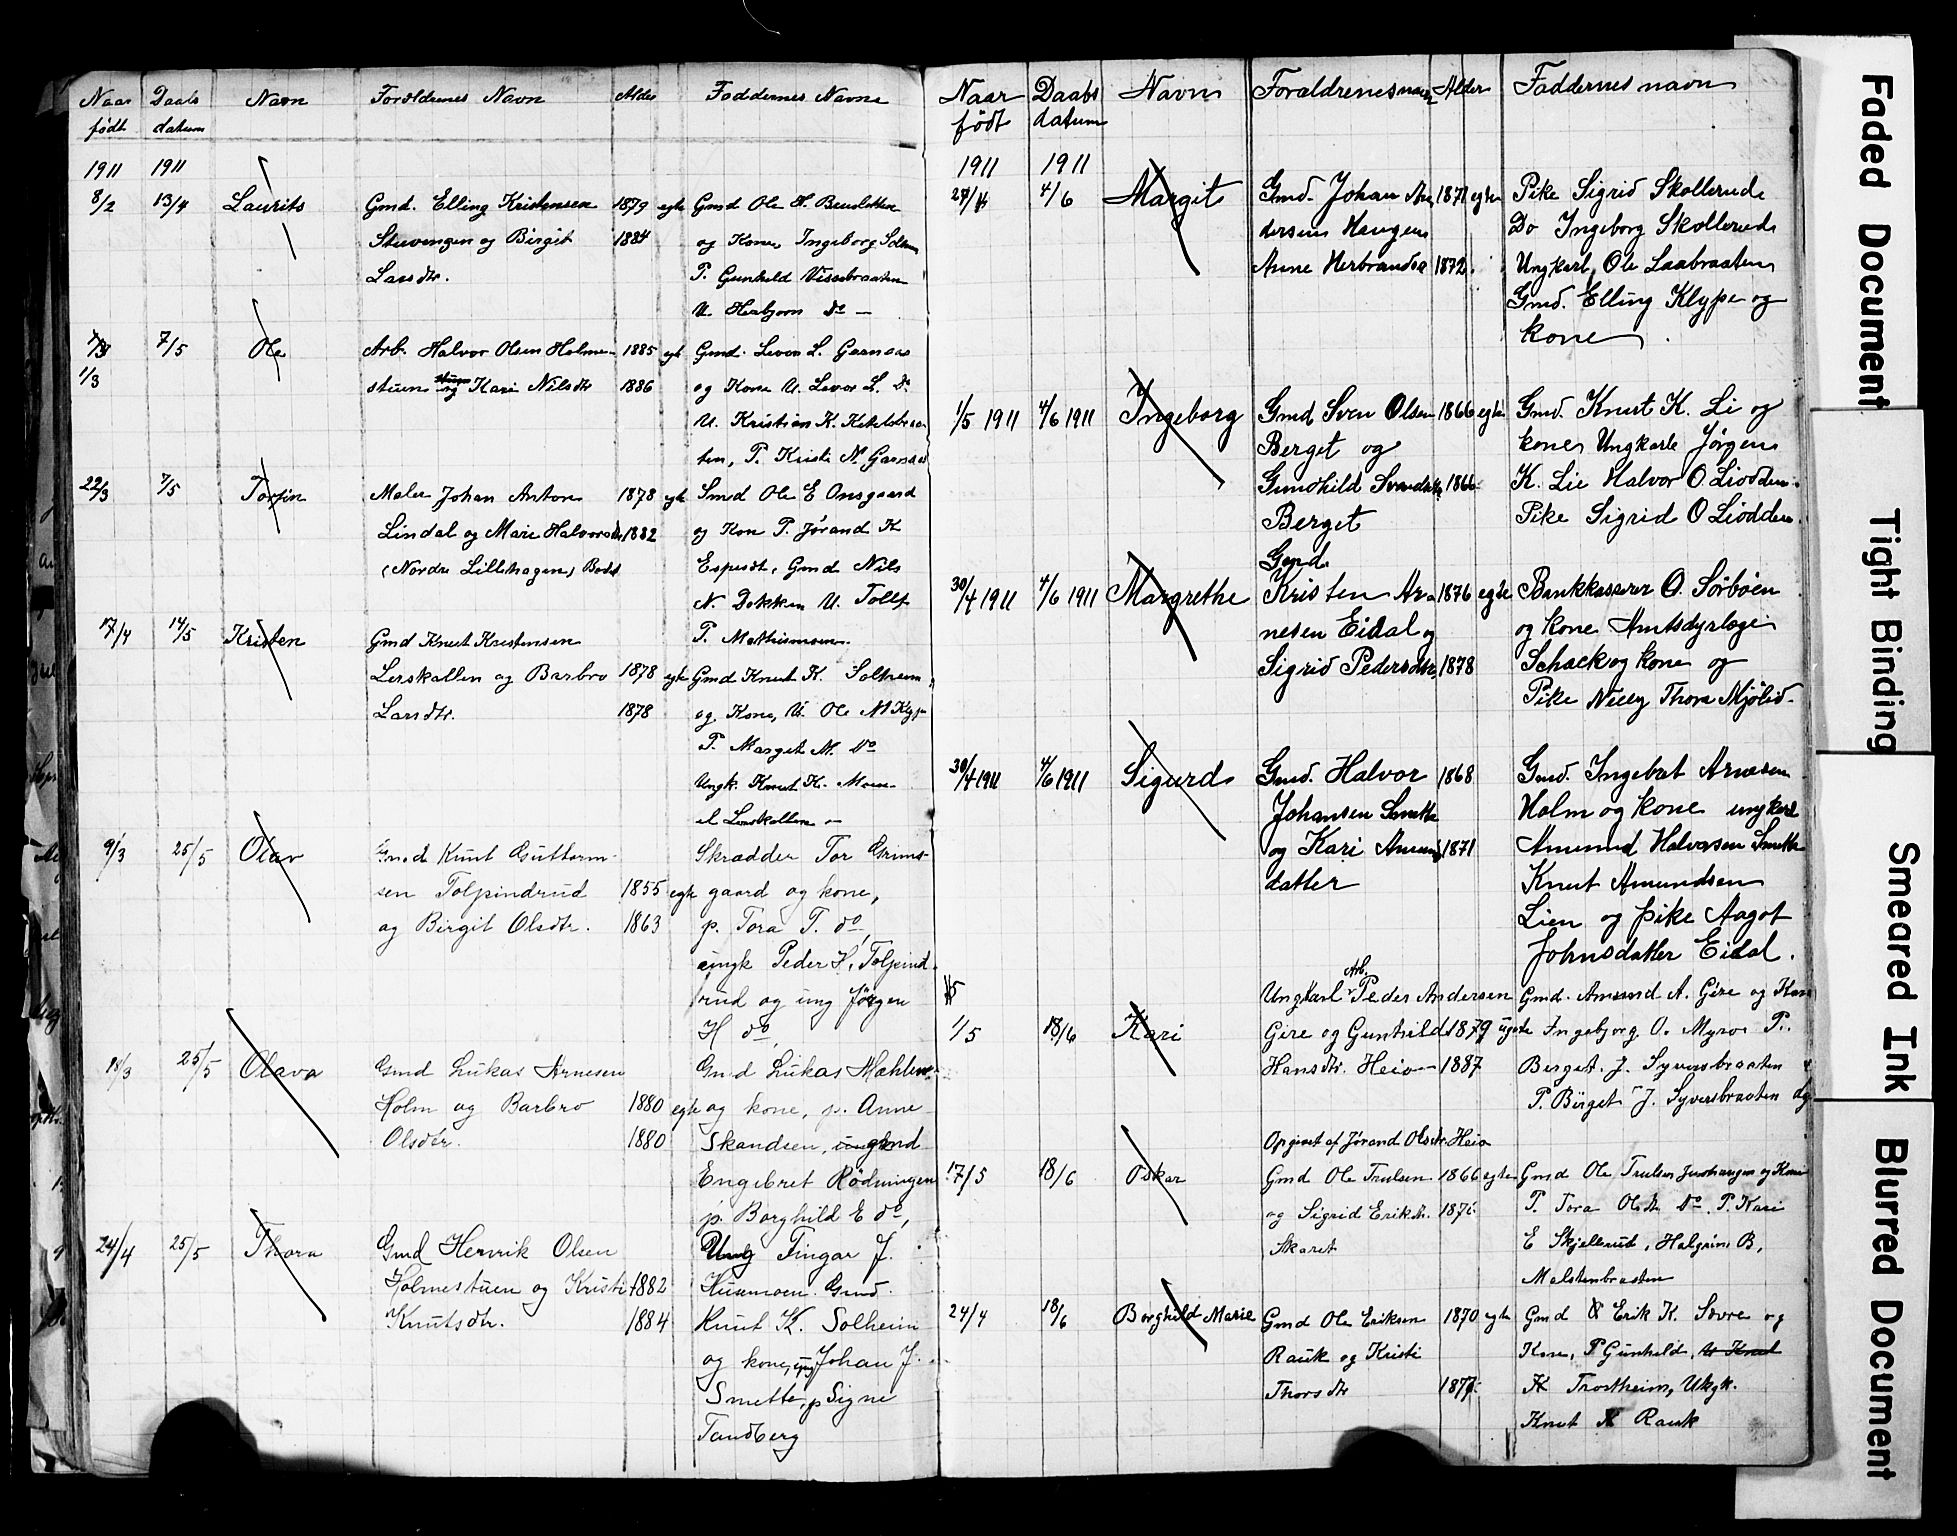 Naar Daabs Navn Foreldrenes Navn Alder Faddernes Navne
født datum
1911 1911
8/2 13/4 Laurits Gmd. Elling Kristensen 1879 egte Gmd Ole H.
Stavengen og Birgit 1884 og Kone, Ingeborg
Larsdtr. P. Gunhild
U. Herbjørn Do —
7/5 Ole Arb. Halvor Olsen Holme- 1885 egte Gmd. Levor L. Garnaas
1/3 stuen og Kari Nilsdtr 1886 og Kone U. Levor L. Do
U. Kristian K.
ten, P. Kristi N. Garnaas
22/3 7/5 Torfin Maler Johan Anton 1878 egte Smd Ole E Onsgaard
Lindal og Mari Halvorsdtr 1882 og Kon P. Jørand K
(Nordre Lillehagen) Espesdt, Gmd Nils
N. Dokken U. Tollef
17/4 14/5 Kristen Gmd Knut Kristensen P. Mathismoen
Lerskallen og Barbro 1878 egte Gmd Knut K. Solheim
Larsdtr. 1878 og Kone, U. Ole
P. Margit M. Do
Ungk. Knut K.
Lerskallen
9/3 25/5 Olav Gmd Knut Guttorm- Skrædder Tor Grims-
sen Tolpindrud 1855 egte gaard og kone,
og Birgit Olsdtr. 1863 p. Tora T. do,
ungk Peder H. Tolpind-
rud og ung Jørgen
H do,
18/3 25/5 Olava Gmd Lukas Arnesen Gmd Lukas
Holm og Barbro 1880 egte og kone, p. Anne
Olsdtr. 1880 Skandsen,
Engebret Rødningen
p. Borghild E do,
24/4 25/5 Thora Gmd Henrik Olsen Ung Fingar J.
Holmestuen og Kristi 1882 Husmoen. Gmd.
Knutsdtr. 1884 Knut K. Solheim
og kone, ung Johan J.
Smette, p Signe
Tandberg
Naar Daabs Navn Forældrenes navn Alder Faddernes navn
født datum
1911 1911
4/6 Margit Gmd. Johan An- 1871 egte Pike Sigrid Skollerud
dersen Haugen Do Ingeborg Skollerud
Anne Herbrandsd 1872. Ungkarl Ole Laabraaten
Gmd. Elling Klype og
kone.
1/5 1911 4/6 1911 Ingeborg Gmd Sven Olsen 1866 egte Gmd. Knut K. Li og
Berget og kone Ungkarle Jørgen
Gundhild Svendsdtr 1866 K. Lie Halvor O. Liodden.
Berget Pike Sigrid O Liodden.
Gmd.
30/4 1911 4/6 1911 Margrethe Kristen Ar- 1876 egte Bankkasserer O. Sørbøen
nesen Eidal og og kone Amtsdyrlæge
Sigrid Pedersdtr 1878 Schack og kone og
Pike Nielly Thora Mjølid.
30/4 1911 4/6 1911 Sigurd Gmd. Halvor 1868 Gmd. Ingebret Arnesen
Johansen Smette Holm og kone ungkarl
og Kari Amund 1871 Amund Halvorsen Smette
datter Knut Amundsen
Lien og pike Aagot
Johnsdatter Eidal.
Arb.
Ungkarl Peder Andersen Gmd. Amund A. Gire og Kone
1/5 18/6 Kari Gire og Gunhild 1879 uegte Ingebjørg O. Myro P.
Hansdtr. Heio 1887 Berget. J. Syversbraaten
P. Birget J. Syversbraaten
Opgivet af Jørand Olsdtr. Heio
17/5 18/6 Oskar Gmd Ole Trulsen 1866 egte Gmd Ole Trulsen og Kone
og Sigrid Eriksdtr. T. Tora Olsdt Do. P. Kari
Skaret E Skjellerud, Halgrim B.
24/4 18/6 Borghild Marie Gmd Ole Eriksen 1870 egte Gmd Erik K. Sevre og
Rauk og Kristi Kone, P Gunhild, U Knut
Thorsdtr K Trostheim, Ungk.
Knut K Rauk
Faded Document
Tight Binding
Smeared Ink
Blurred Document